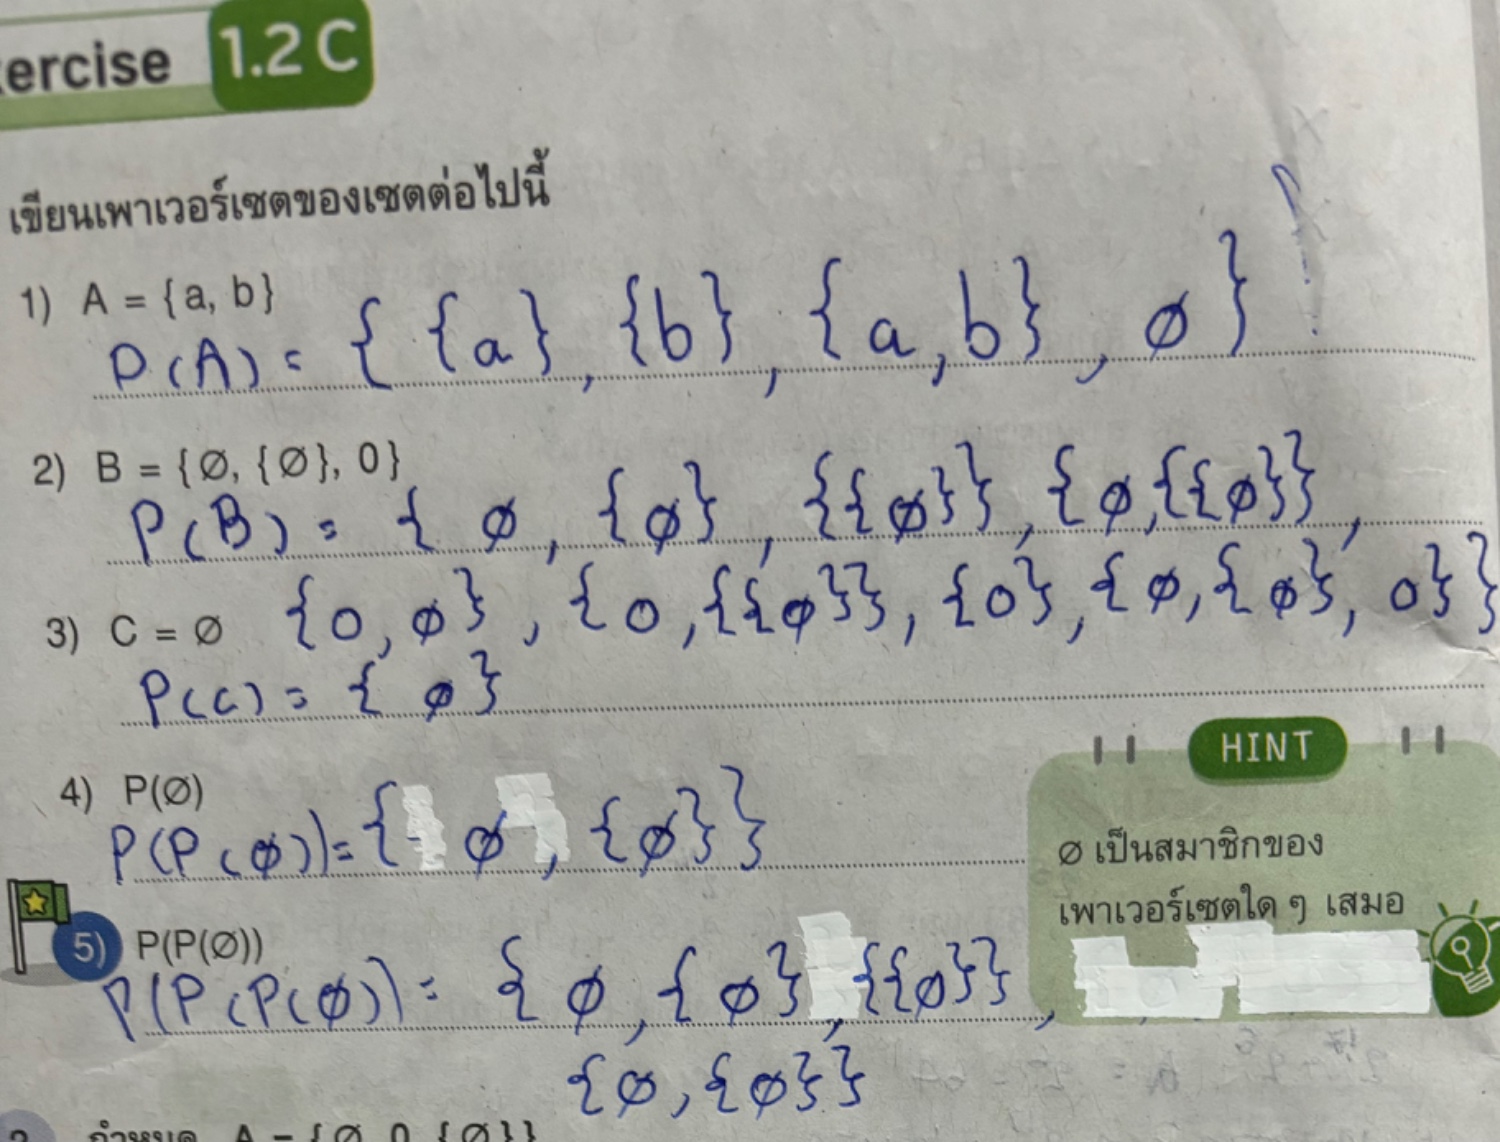 ercise 1.2 C
เขียนเพาเวอร์เซตของเซตต่อไปนี้
1) A = {a, b}
P(A) = { {a}, {b}, {a,b}, ø }
2) B = {Ø, {Ø}, 0}
P(B) = { ø, {ø}, {{ø}}, {ø,{{ø}},
{0,ø}, {0,{{ø}}, {0}, {ø,{ø},0}}
3) C = Ø
P(C) = { ø }
4) P(Ø)
P(P(ø)) = { ø, {ø}}
HINT
ø เป็นสมาชิกของ
เพาเวอร์เซตใด ๆ เสมอ
5) P(P(Ø))
P(P(P(ø)) = { ø, {ø}, {{ø}},
{ø,{ø}}
กำหนด A = {Ø, 0, {Ø}}